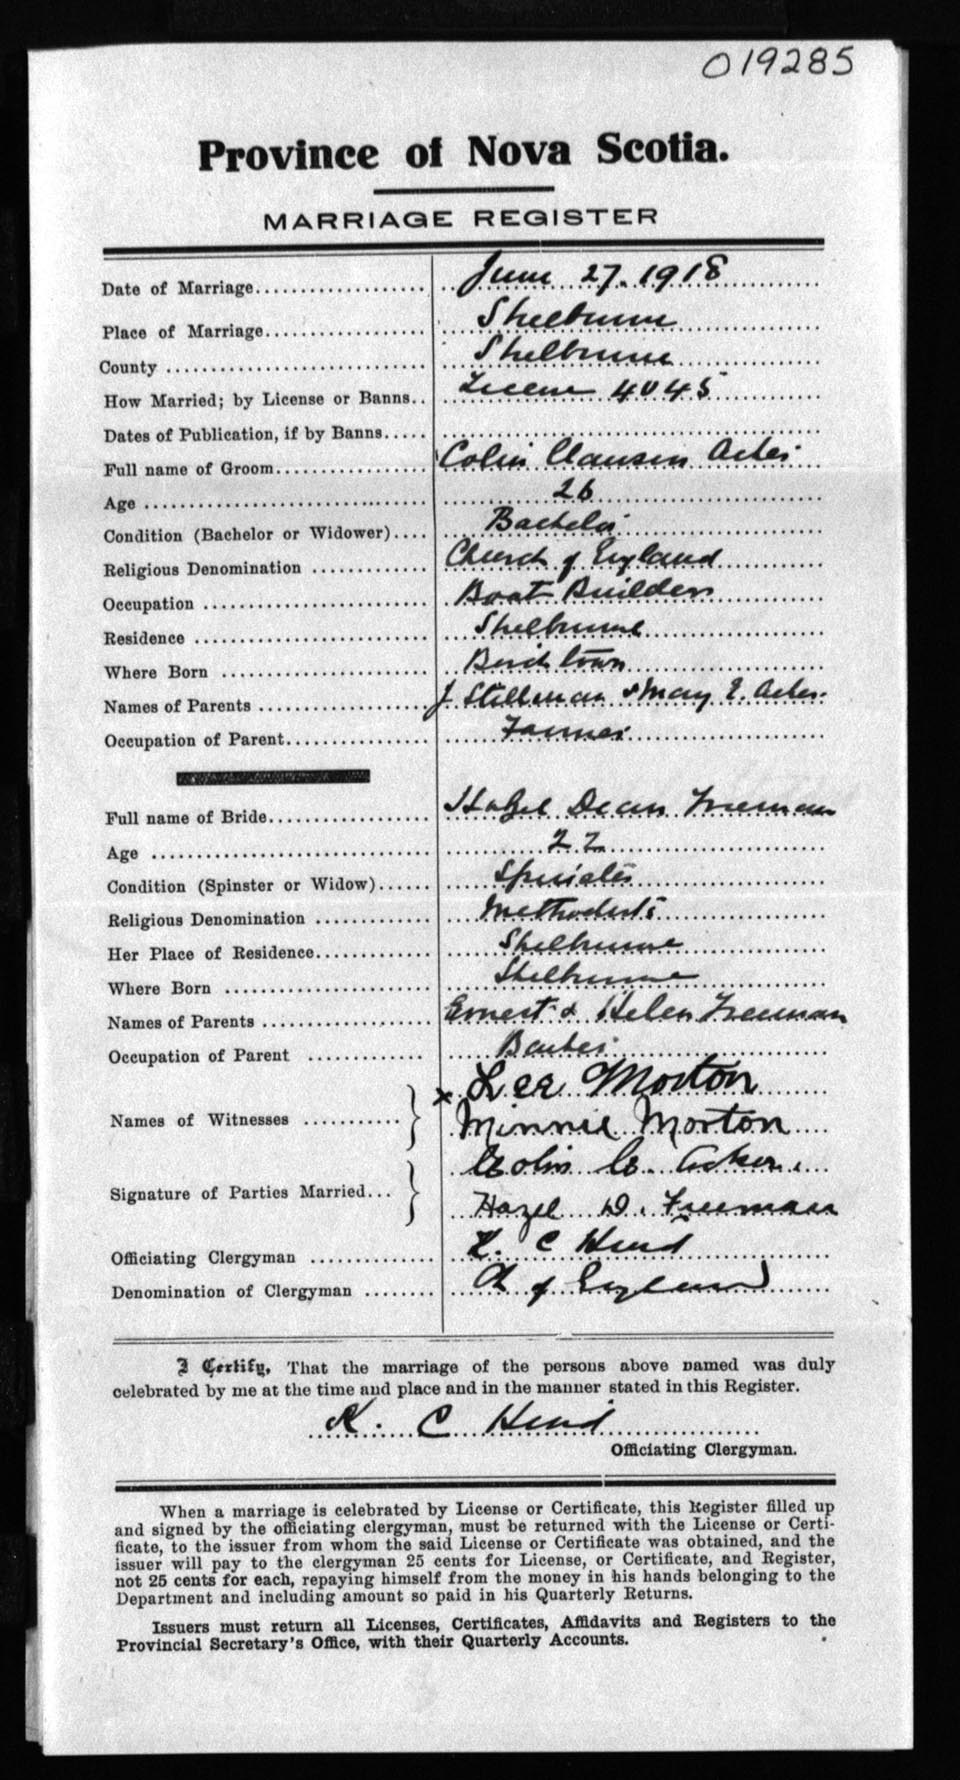 019285
Province of Nova Scotia.
MARRIAGE REGISTER
Date of Marriage.................... June 27. 1918
Place of Marriage.................. Shelburne
County ............................. Shelburne
How Married; by License or Banns.. License 4045
Dates of Publication, if by Banns.....
Full name of Groom................. Colin Clausen Acker
Age ............................... 26
Condition (Bachelor or Widower).... Bachelor
Religious Denomination ............ Church of England
Occupation ........................ Boat Builder
Residence ......................... Shelburne
Where Born ........................ Birchtown
Names of Parents .................. J. Stillman & Mary E. Acker
Occupation of Parent................ Farmer
Full name of Bride.................. Hazel Dean Freeman
Age ................................ 22
Condition (Spinster or Widow)...... Spinster
Religious Denomination ............ Methodist
Her Place of Residence............. Shelburne
Where Born ........................ Shelburne
Names of Parents .................. Ernest & Helen Freeman
Occupation of Parent ............. Barber
x Lee Morton
Names of Witnesses ...........
Minnie Morton
Colin C. Acker.
Signature of Parties Married...
Hazel D. Freeman
Officiating Clergyman ............. K. C Hind
Denomination of Clergyman ........ Ch of England
I Certify, That the marriage of the persons above named was duly
celebrated by me at the time and place and in the manner stated in this Register.
K. C Hind
Officiating Clergyman.
When a marriage is celebrated by License or Certificate, this Register filled up
and signed by the officiating clergyman, must be returned with the License or Certi-
ficate, to the issuer from whom the said License or Certificate was obtained, and the
issuer will pay to the clergyman 25 cents for License, or Certificate, and Register,
not 25 cents for each, repaying himself from the money in his hands belonging to the
Department and including amount so paid in his Quarterly Returns.
Issuers must return all Licenses, Certificates, Affidavits and Registers to the
Provincial Secretary's Office, with their Quarterly Accounts.